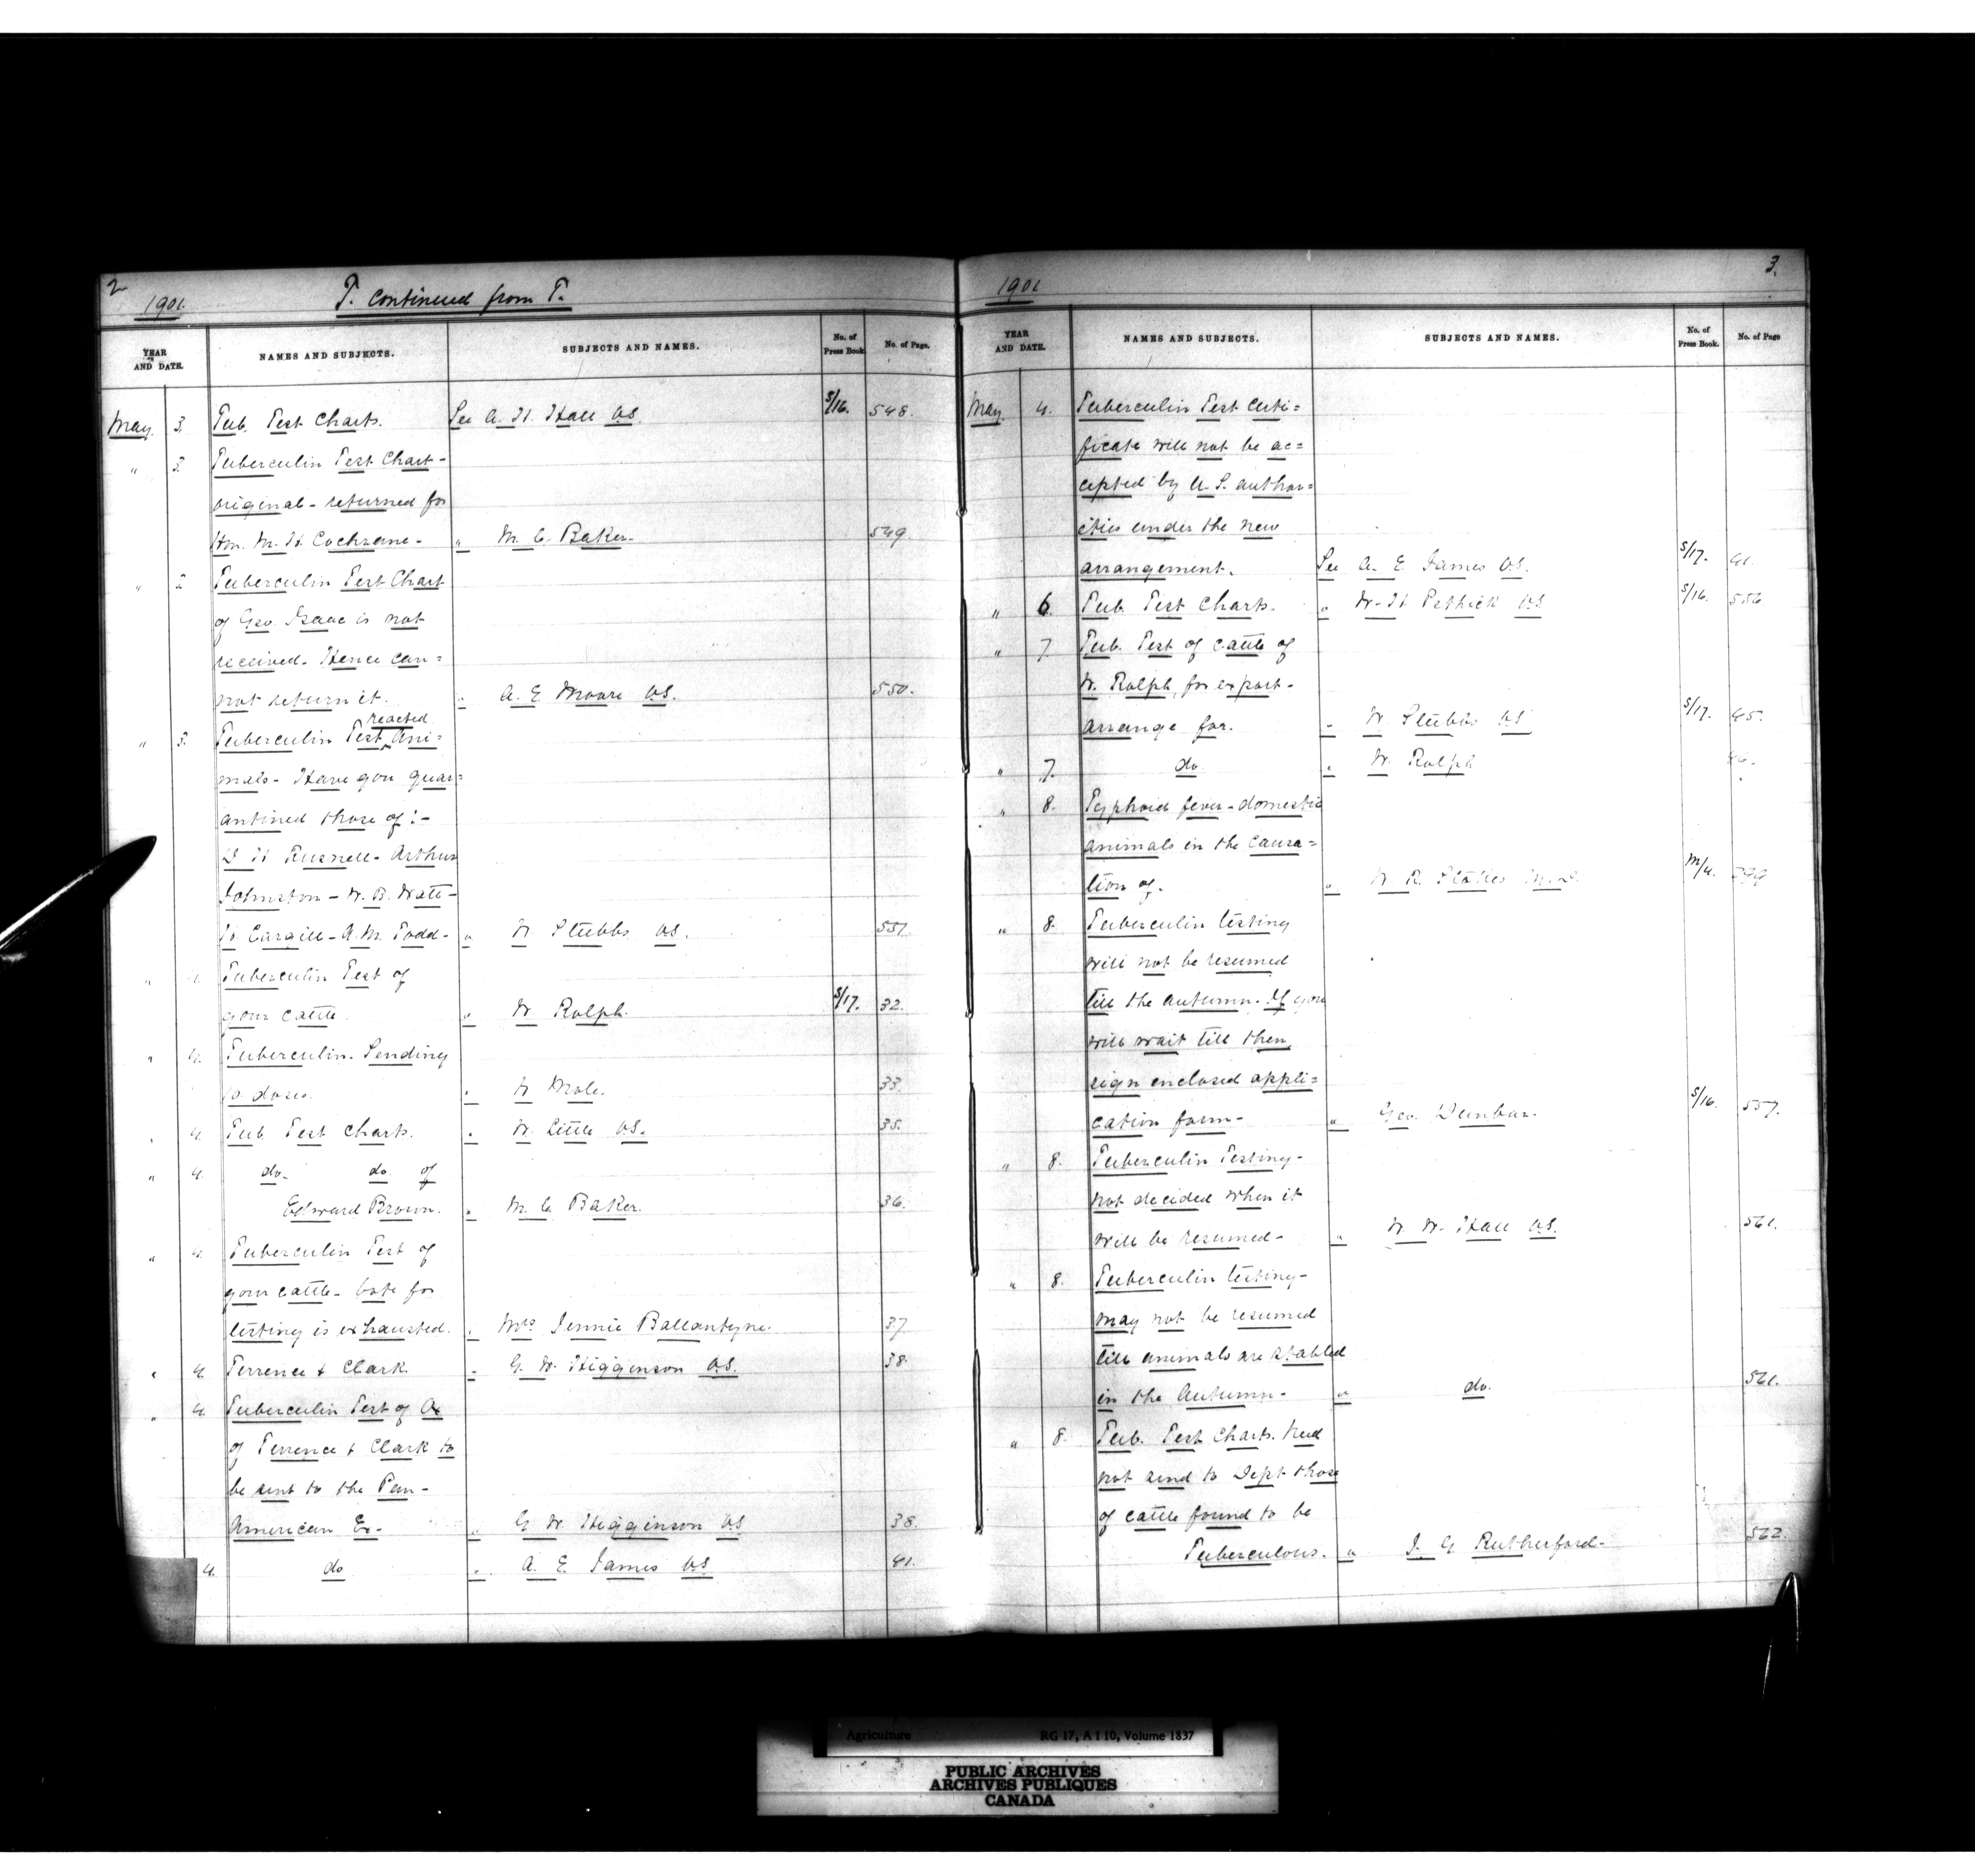 2
1901.
T. continued from T.
YEAR AND DATE.
NAMES AND SUBJECTS.
SUBJECTS AND NAMES.
No. of Press Book
No. of Page.
May 3. Tub. Test Charts. See A. H. Hall V.S. S/16. 548.
" 3. Tuberculin Test Chart -
original - returned for
Hon. M. H. Cochrane - " M. C. Baker. 549
" 3. Tuberculin Test Chart
of Geo. Isaac is not
received. Hence can=
not return it. " A. E. Moore V.S. 550.
reacted
" 3. Tuberculin Test Ani=
mals - Have you quar=
antined those of :-
D H Rusnell - Arthur
Johnston - W. B. Watt -
H. Cargill - A. M. Todd - " W Stubbs V.S. 551.
" 4. Tuberculin Test of
your cattle. " W Rolph. S/17. 32.
" 4. Tuberculin. Sending
10 doses. " W Mole. 33.
" 4. Tub. Test Charts. " W. Little V.S. 35.
" 4. do. do of
Edward Brown. " M. C. Baker. 36.
" 4. Tuberculin Test of
your cattle - vote for
testing is exhausted. " Mrs Jennie Ballantyne. 37
" 4. Terrence & Clark " G. W. Higginson V.S. 38.
" 4. Tuberculin Test of Ox
of Terrence & Clark to
be sent to the Pan -
American Ex - " G W Higginson V.S 38.
4. do " A. E. James V.S 41.
3.
1901
YEAR AND DATE.
NAMES AND SUBJECTS.
SUBJECTS AND NAMES.
No. of Press Book.
No. of Page
May. 4. Tuberculin Test Certi=
ficate will not be ac=
cepted by U. S. author=
ities under the new
arrangement. See A. E James V.S. S/17. 41.
" 6. Tub. Test Charts. " W. H Pethick V.S S/16. 556
" 7. Tub. Test of cattle of
W. Rolph, for export -
arrange for. " W. Stubbs V.S S/17. 45.
" 7. do " W. Rolph 46.
" 8. Typhoid fever - domestic
animals in the causa=
tion of. " W R. Stokes M.D. M/4. 299
" 8. Tuberculin testing
will not be resumed
till the autumn. If you
will wait till then,
sign enclosed appli=
cation form - " Geo. Dunbar. S/16. 557.
" 8. Tuberculin Testing -
not decided when it
will be resumed - " W W. Hall V.S. 561.
" 8. Tuberculin testing -
may not be resumed
till animals are stabled
in the Autumn - " do. 561.
" 8. Tub. Test Charts. Need
not send to Dept those
of cattle found to be
Tuberculous. " J. G Rutherford - 562.
Agriculture RG 17, A I 10, Volume 1837
PUBLIC ARCHIVES
ARCHIVES PUBLIQUES
CANADA